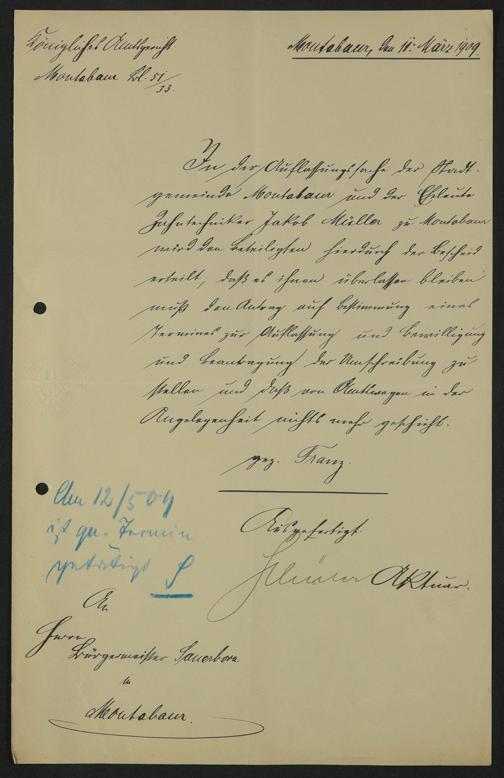 Königliches Amtsgericht
Montabaur Bl. 51/33.
Montabaur, den 11. März 1909.
In der Auflassungssache der Stadt-
gemeinde Montabaur und der Eheleute
Zahntechniker Jakob Müller zu Montabaur
wird den Beteiligten hierdurch der Bescheid
erteilt, daß es ihnen überlassen bleiben
muß den Antrag auf Bestimmung eines
Termines zur Auflassung und Bewilligung
und Beantragung der Umschreibung zu
stellen und daß von Amtswegen in der
Angelegenheit nichts mehr geschieht.
gez. Franz.
Ausgefertigt.
Aktuar.
Am 12/5 09
ist gen. Termin
getätigt
An
Herrn
Bürgermeister Sauerborn
in
Montabaur.